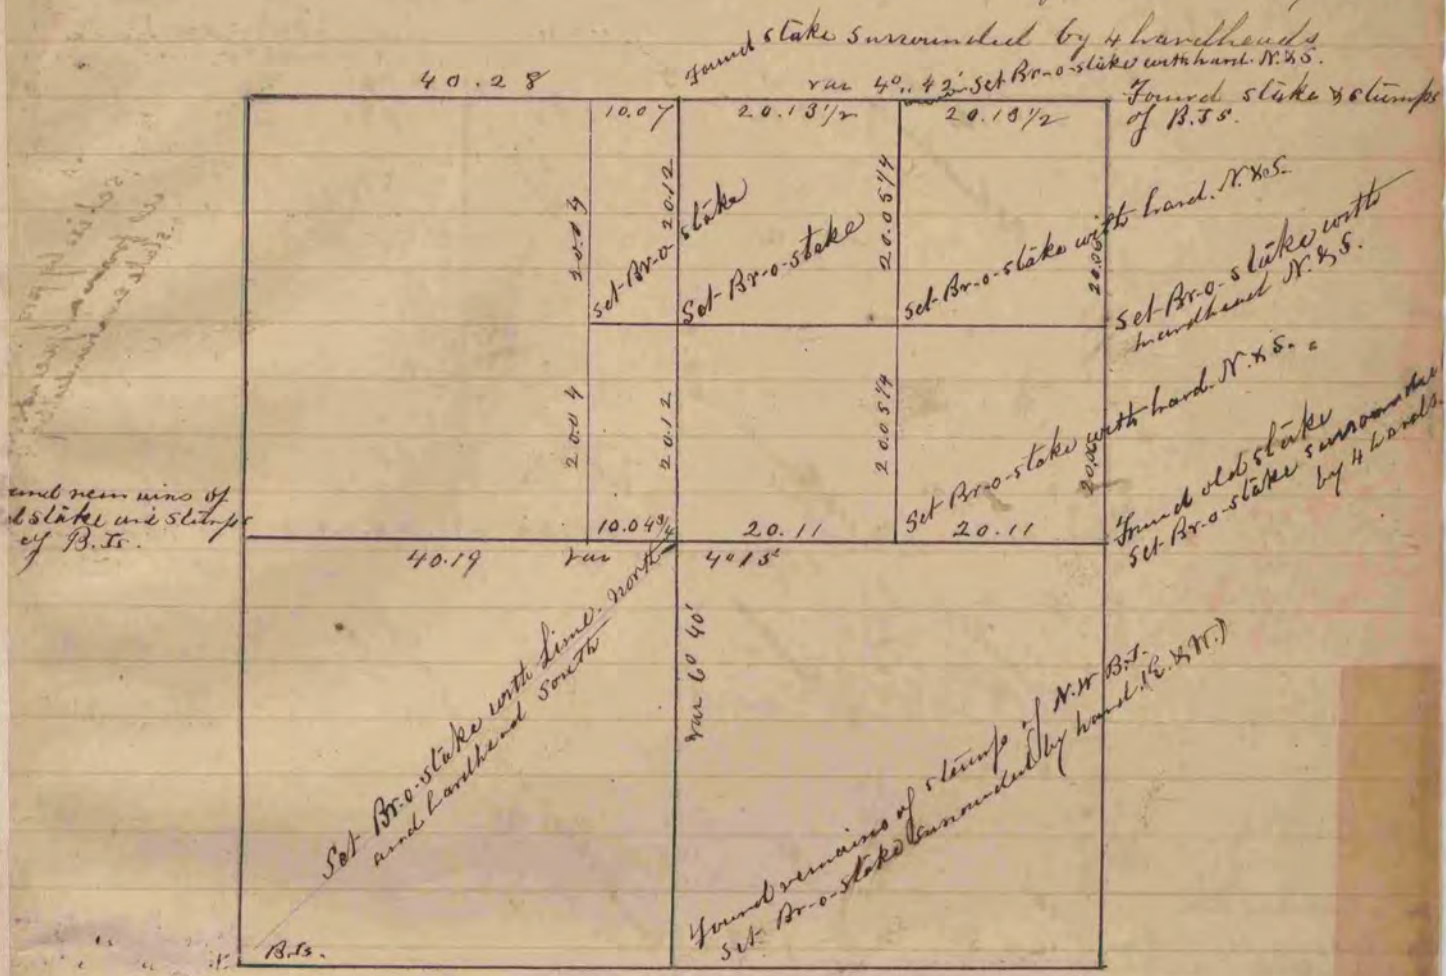 Found stake surrounded by 4 hardheads
40.28
var 4°.. 42' Set Br-o-stake with hard. N. & S.
Found stake & stumps
of B.Ts.
10.07
20.13 1/2
20.13 1/2
20.04
20.12
20.05 1/4
20.06
Set Br-o-stake
Set Br-o-stake
Set Br-o-stake with hard. N. & S.
Set Br-o-stake with
hardhead N. & S.
20.04
20.12
20.05 1/4
20.06
Set Br-o-stake with hard. N. & S.
Found old stake
Set Br-o-stake surrounded
by 4 hards.
remains of
stake and stumps
of B.Ts.
10.04 3/4
20.11
20.11
40.19
var
4° 15'
var 6° 40'
Set Br-o-stake with Lime. north
and hardhead South
Found remains of stump of N.W B.T.
Set Br-o-stake surrounded by hard. (E. & W.)
B.Ts.